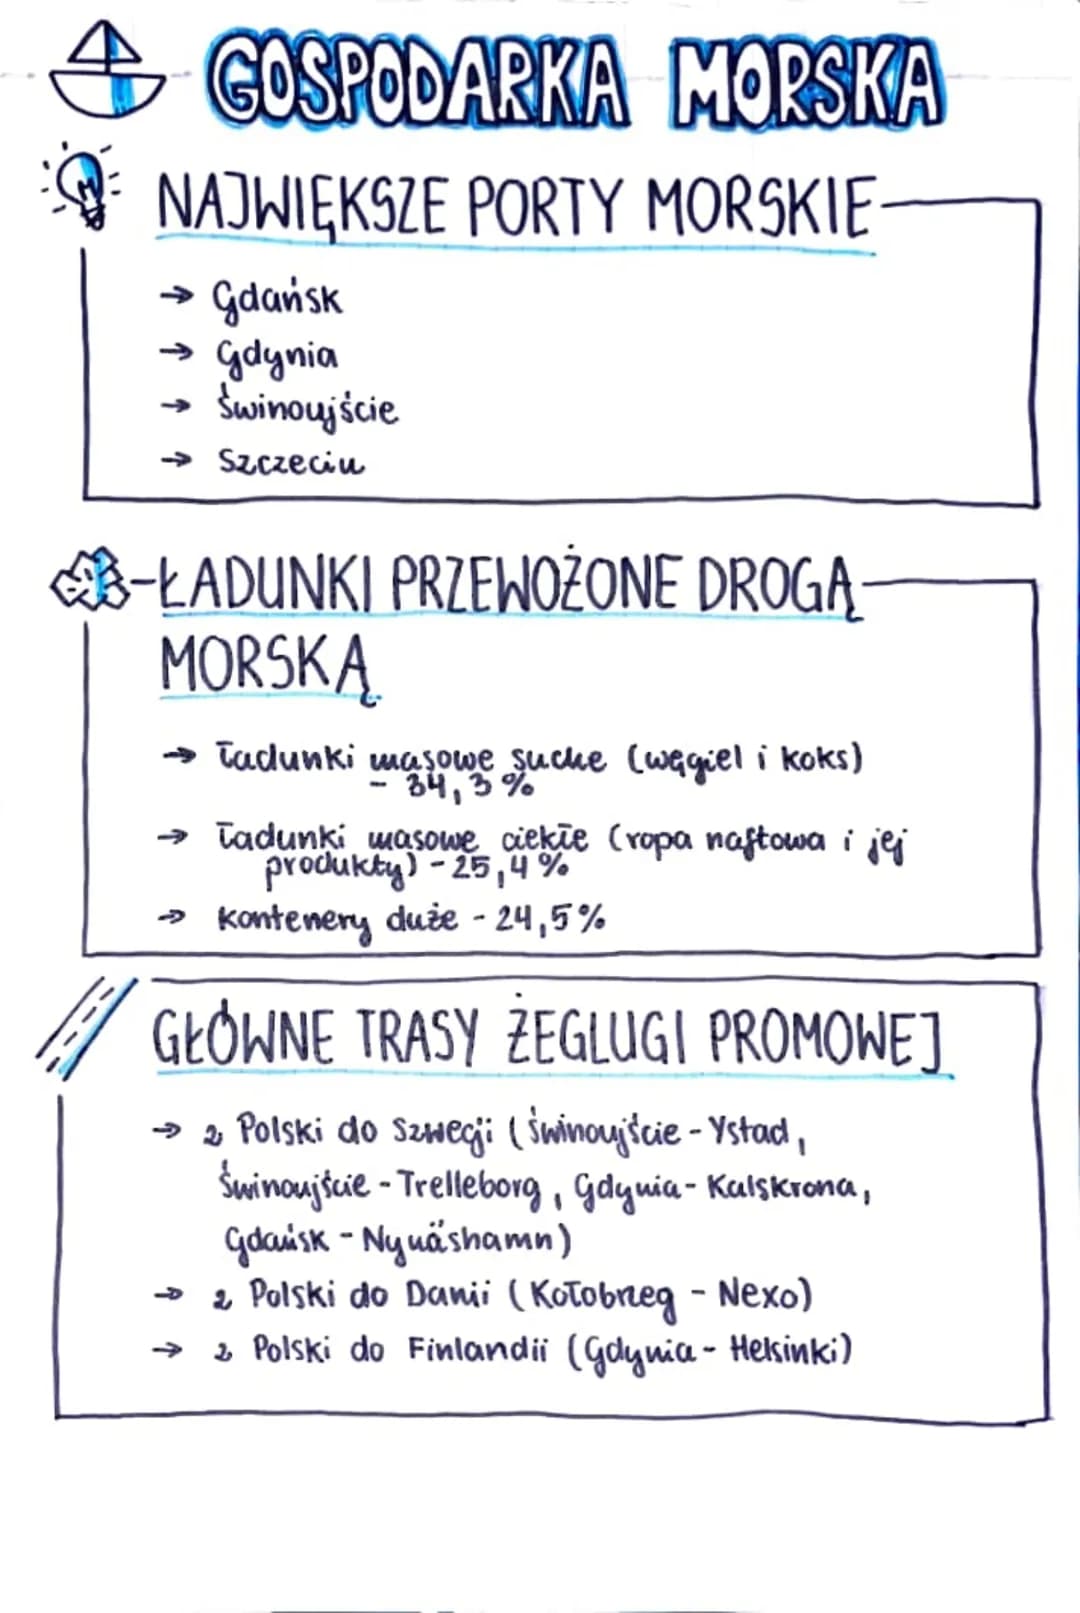 GOSPODARKA MORSKA
NAJWIĘKSZE PORTY MORSKIE
→ Gdańsk
→ Gdynia
→ Świnoujście
→ Szczecin
ŁADUNKI PRZEWOŻONE DROGĄ
MORSKĄ
→ ładunki masowe suche (węgiel i koks)
- 34,3%
→ ładunki masowe ciekłe (ropa naftowa i jej
produkty) - 25,4%
→ kontenery duże - 24,5%
GŁÓWNE TRASY ŻEGLUGI PROMOWEJ
→ z Polski do Szwecji (Świnoujście - Ystad,
Świnoujście - Trelleborg, Gdynia - Kalskrona,
Gdańsk - Nynäshamn)
→ z Polski do Danii (Kołobrzeg - Nexo)
→ z Polski do Finlandii (Gdynia - Helsinki)